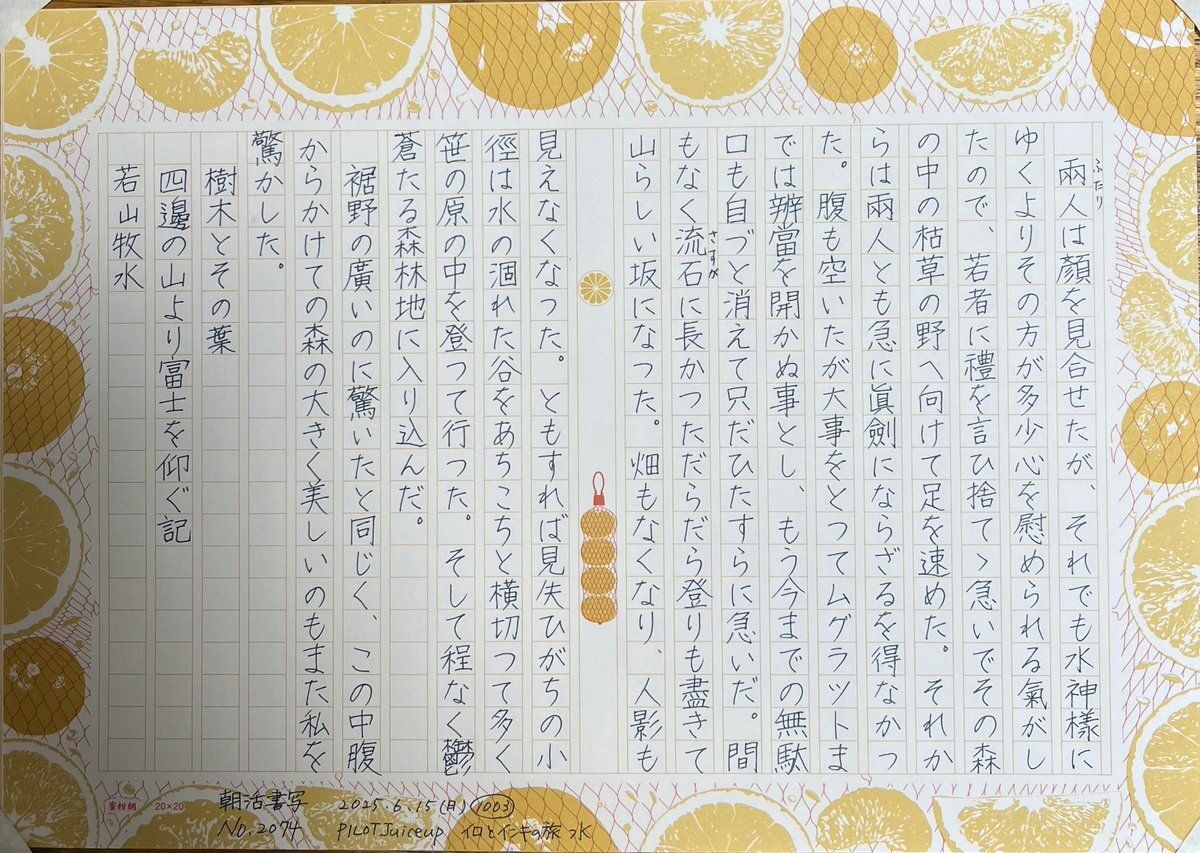 兩人は顏を見合せたが、それでも水神樣に
ふたり
ゆくよりその方が多少心を慰められる氣がし
たので、若者に禮を言ひ捨てゝ急いでその森
の中の枯草の野へ向けて足を速めた。それか
らは兩人とも急に眞劍にならざるを得なかつ
た。腹も空いたが大事をとつてムグラツトま
では辨當を開かぬ事とし、もう今までの無駄
口も自づと消えて只だひたすらに急いだ。間
もなく流石に長かつただらだら登りも盡きて
さすが
山らしい坂になつた。畑もなくなり、人影も
見えなくなつた。ともすれば見失ひがちの小
徑は水の涸れた谷をあちこちと横切つて多く
笹の原の中を登つて行つた。そして程なく鬱
蒼たる森林地に入り込んだ。
裾野の廣いのに驚いたと同じく、この中腹
からかけての森の大きく美しいのもまた私を
驚かした。
樹木とその葉
四邊の山より富士を仰ぐ記
若山牧水
蜜柑網 20×20
朝活書写 2025.6.15(月)(1003)
No.2074 PILOT Juiceup イロとインキの旅 水